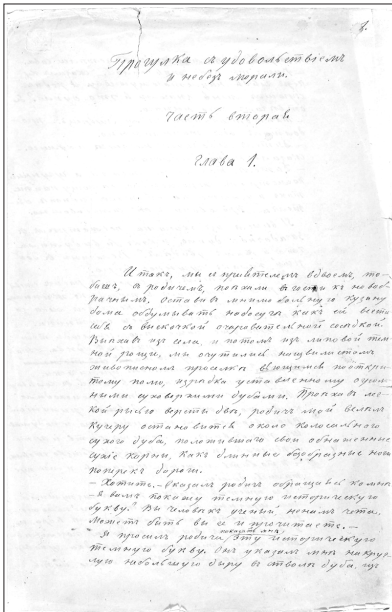 1.
Прогулка съ удовольствіемъ
и небезъ морали.
Часть вторая
Глава 1.
Итакъ, мы съ пріятелемъ вдвоемъ, то-
бишь, съ родичемъ, поѣхали въ гости къ новобра
чнымъ. Оставивъ мнимо больную кузину
дома обдумывать на досугѣ какъ ей вести
себя съ выскочкой очаровательной сосѣдкой.
Выѣхавъ изъ села, и потомъ изъ липовой тем
ной рощи, мы очутились на
живописномъ проселкѣ вьющимся по откры
тому полю, изрѣдка уставленному огром
ными суховерхими дубами. Проѣхавъ лег
кой рысью версты двѣ, родичъ мой велѣлъ
кучеру остановится около колосального
сухого дуба, положившаго свои обнаженные
сухіе корни, какъ длинные безобразные ноги
поперекъ дороги.
— Хотите. — Сказалъ родичъ обращаясь комнѣ
— Я вамъ покажу темную историческую
букву? Вы человѣкъ ученый, не намъ чета.
Можетъ быть вы ее и прочитаете. —
показать мнѣ
Я просилъ родича эту историческую
темную букву. Онъ указалъ мнѣ на круг
лую небольшую дыру въ стволѣ дуба, изъ